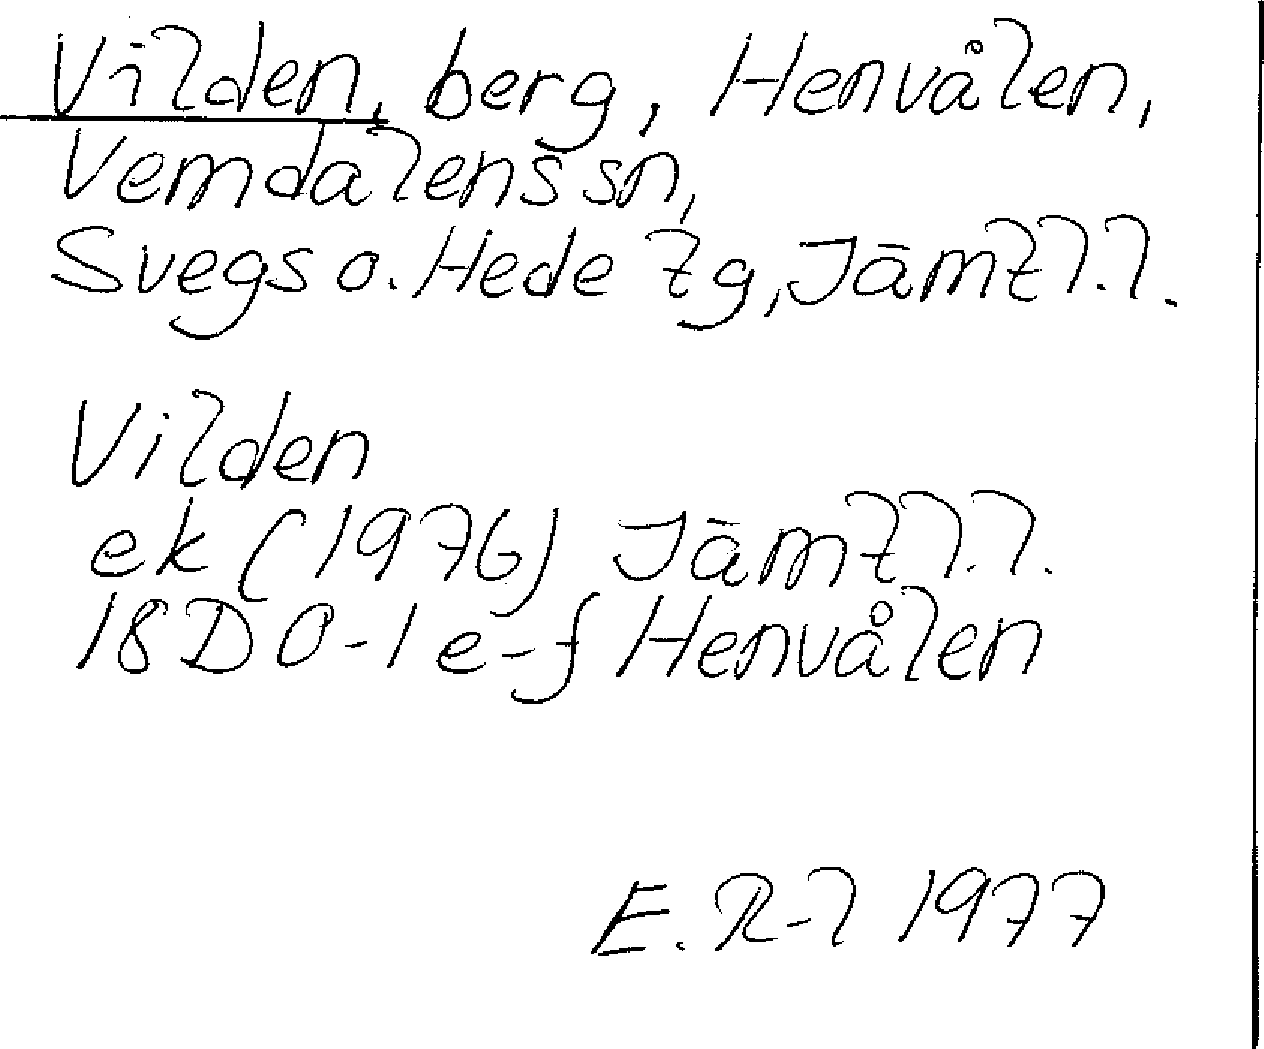 Vilden, berg, Henvålen,
Vemdalens sn,
Svegs o. Hede tg, Jämtl.l.
Vilden
ek (1976) Jämtl.l.
18D 0-1 e-f Henvålen
E. R-l 1977